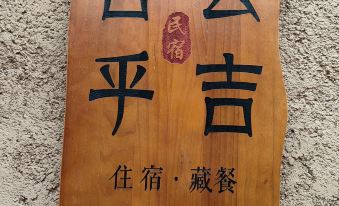 民宿
乎 吉
住宿·藏餐